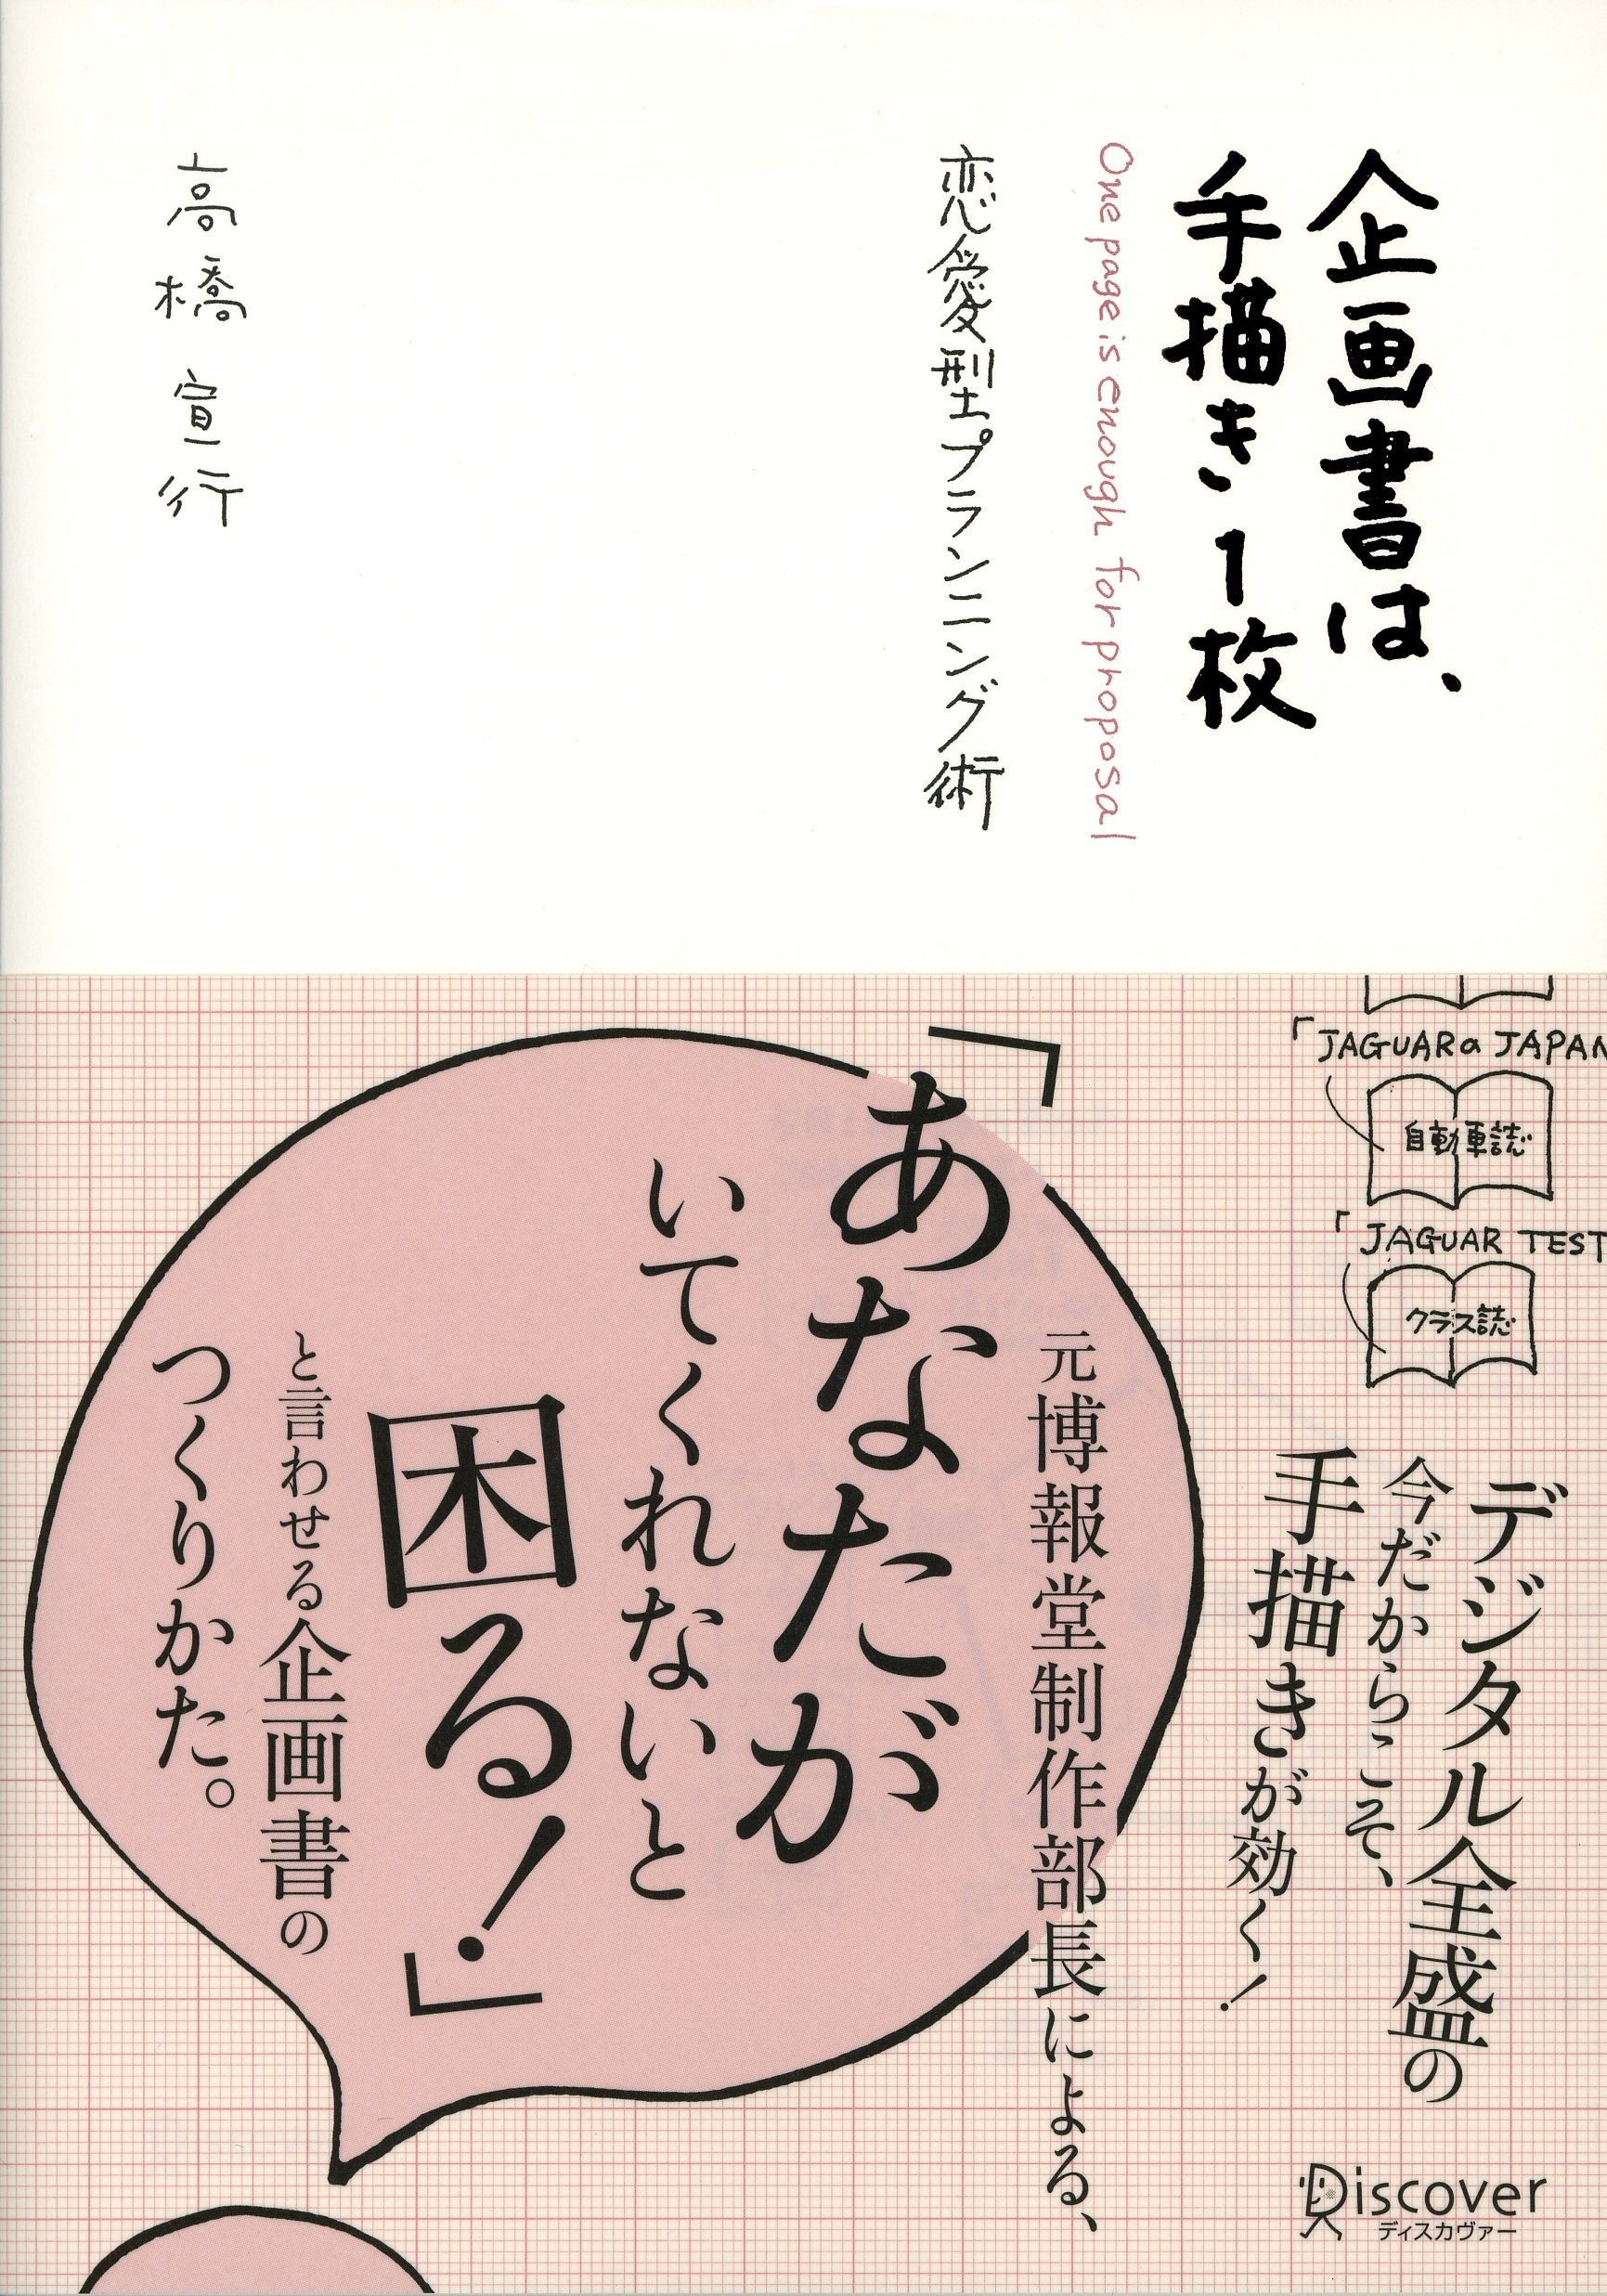 企画書は、
手描き1枚
One page is enough for proposal
恋愛型プランニング術
高橋 宣行
「JAGUARa JAPAN
自動車誌
「JAGUAR TEST
クラス誌
デジタル全盛の
今だからこそ、
手描きが効く!
元博報堂制作部長による、
「あなたが
いてくれないと
困る!」
と言わせる企画書の
つくりかた。
Discover
ディスカヴァー